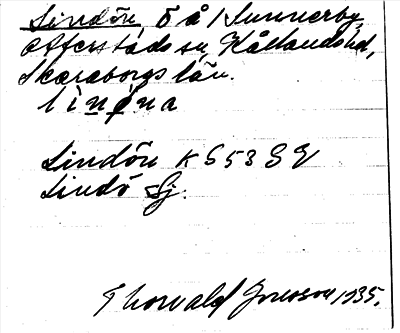 Lindön Ö å /Sunnerby,
Otterstads sn, Kållands hd,
Skaraborgs län.
linøna
Lindön K S53SV
Lindö Sj.
Thorvald 1935.